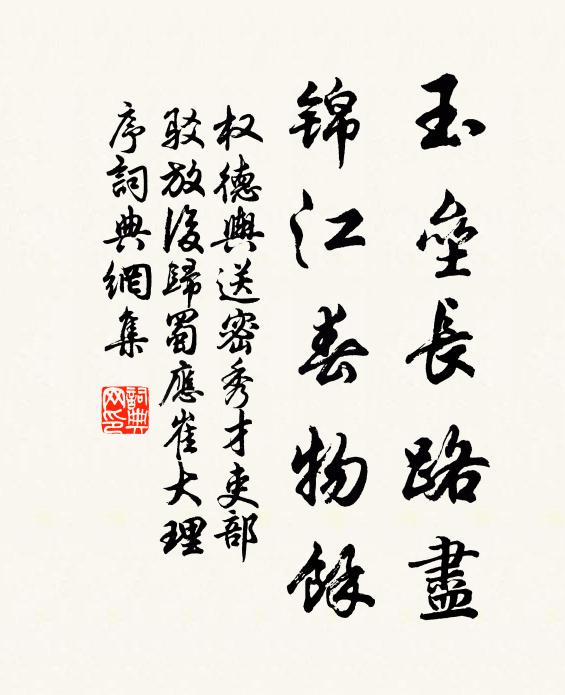 玉壘長路盡
錦江春物餘
权德輿送密秀才吏部
駁放後歸蜀應崔大理
序詞典網集
詞典网印